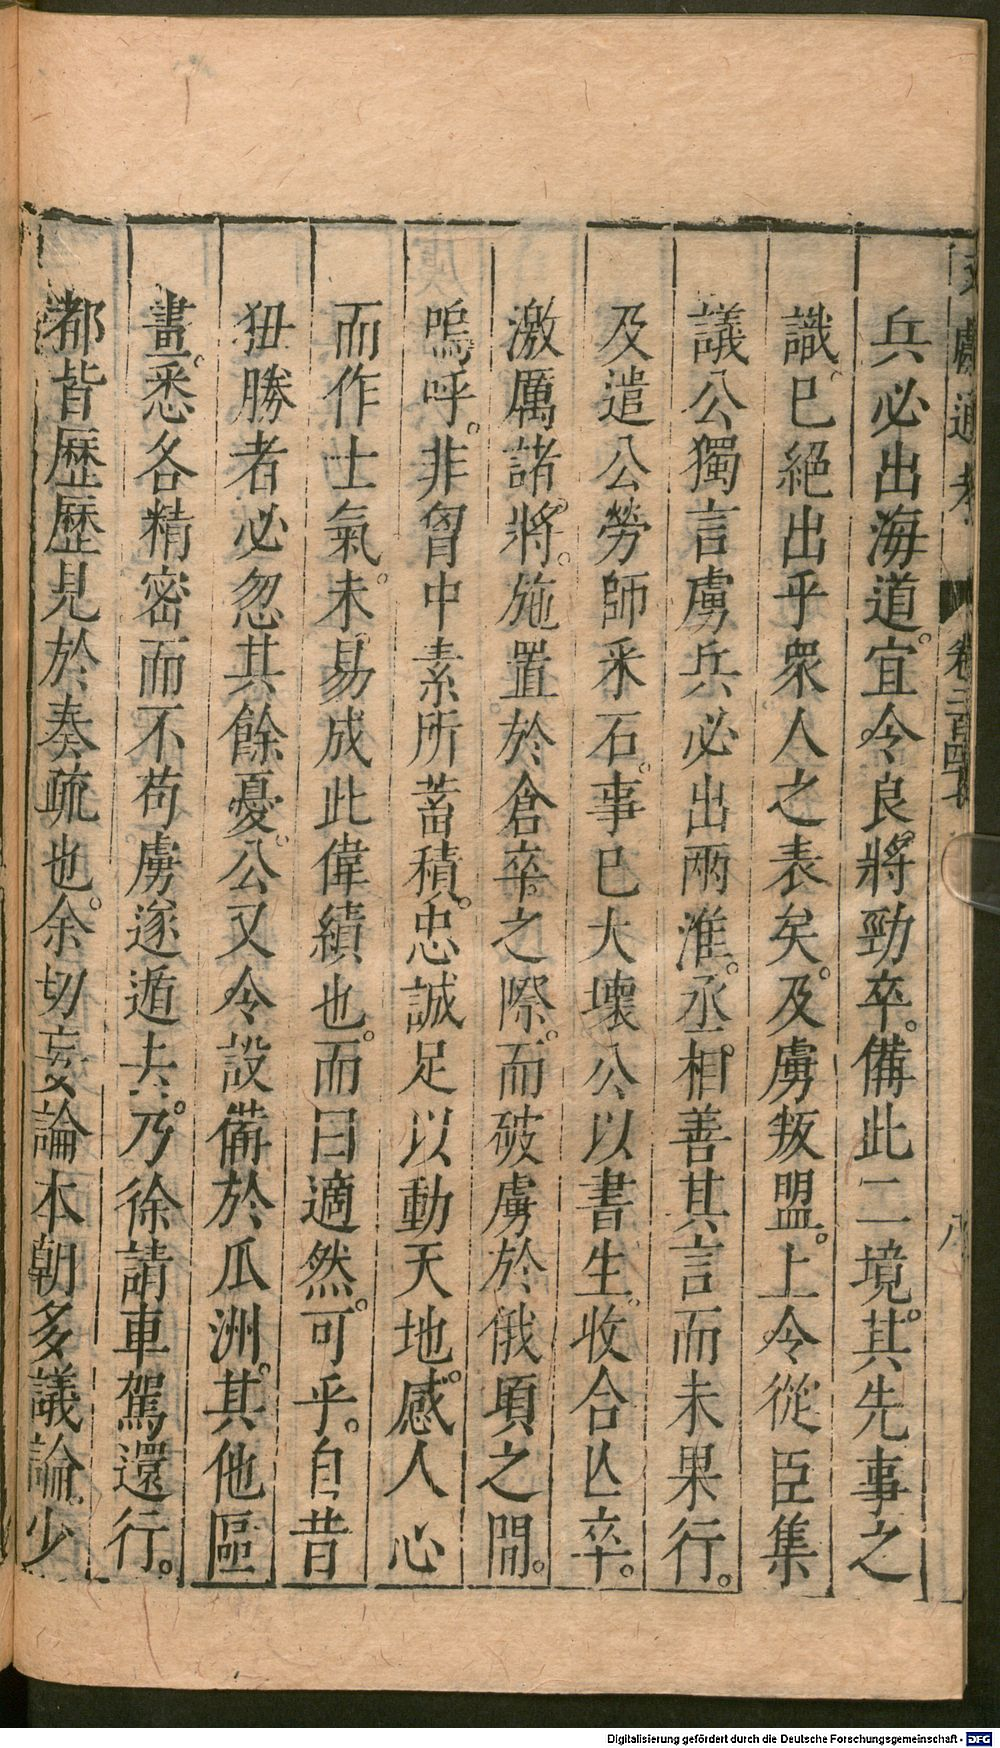 兵必出海道。宜令良將勁卒。備此二境。其先事之
識。已絕出乎衆人之表矣。及虜叛盟。上令從臣集
議公獨言虜兵必出兩淮。丞相善其言而未果行。
及遣公勞師采石。事已大壞公以書生。收合亾卒。
激厲諸將。施置於倉卒之際。而破虜於俄頃之間。
嗚呼。非胷中素所蓄積。忠誠足以動天地。感人心
而作士氣。未易成此偉績也。而曰適然。可乎。自昔
狃勝者必忽其餘憂。公又令設備於瓜洲。其他區
畫。悉各精密而不苟虜遂遁去。乃徐請車駕還行。
都皆歷歷見於奏疏也。余切妄論本朝多議論。少
獻通考
卷二百四
Digitalisierung gefördert durch die Deutsche Forschungsgemeinschaft - DFG